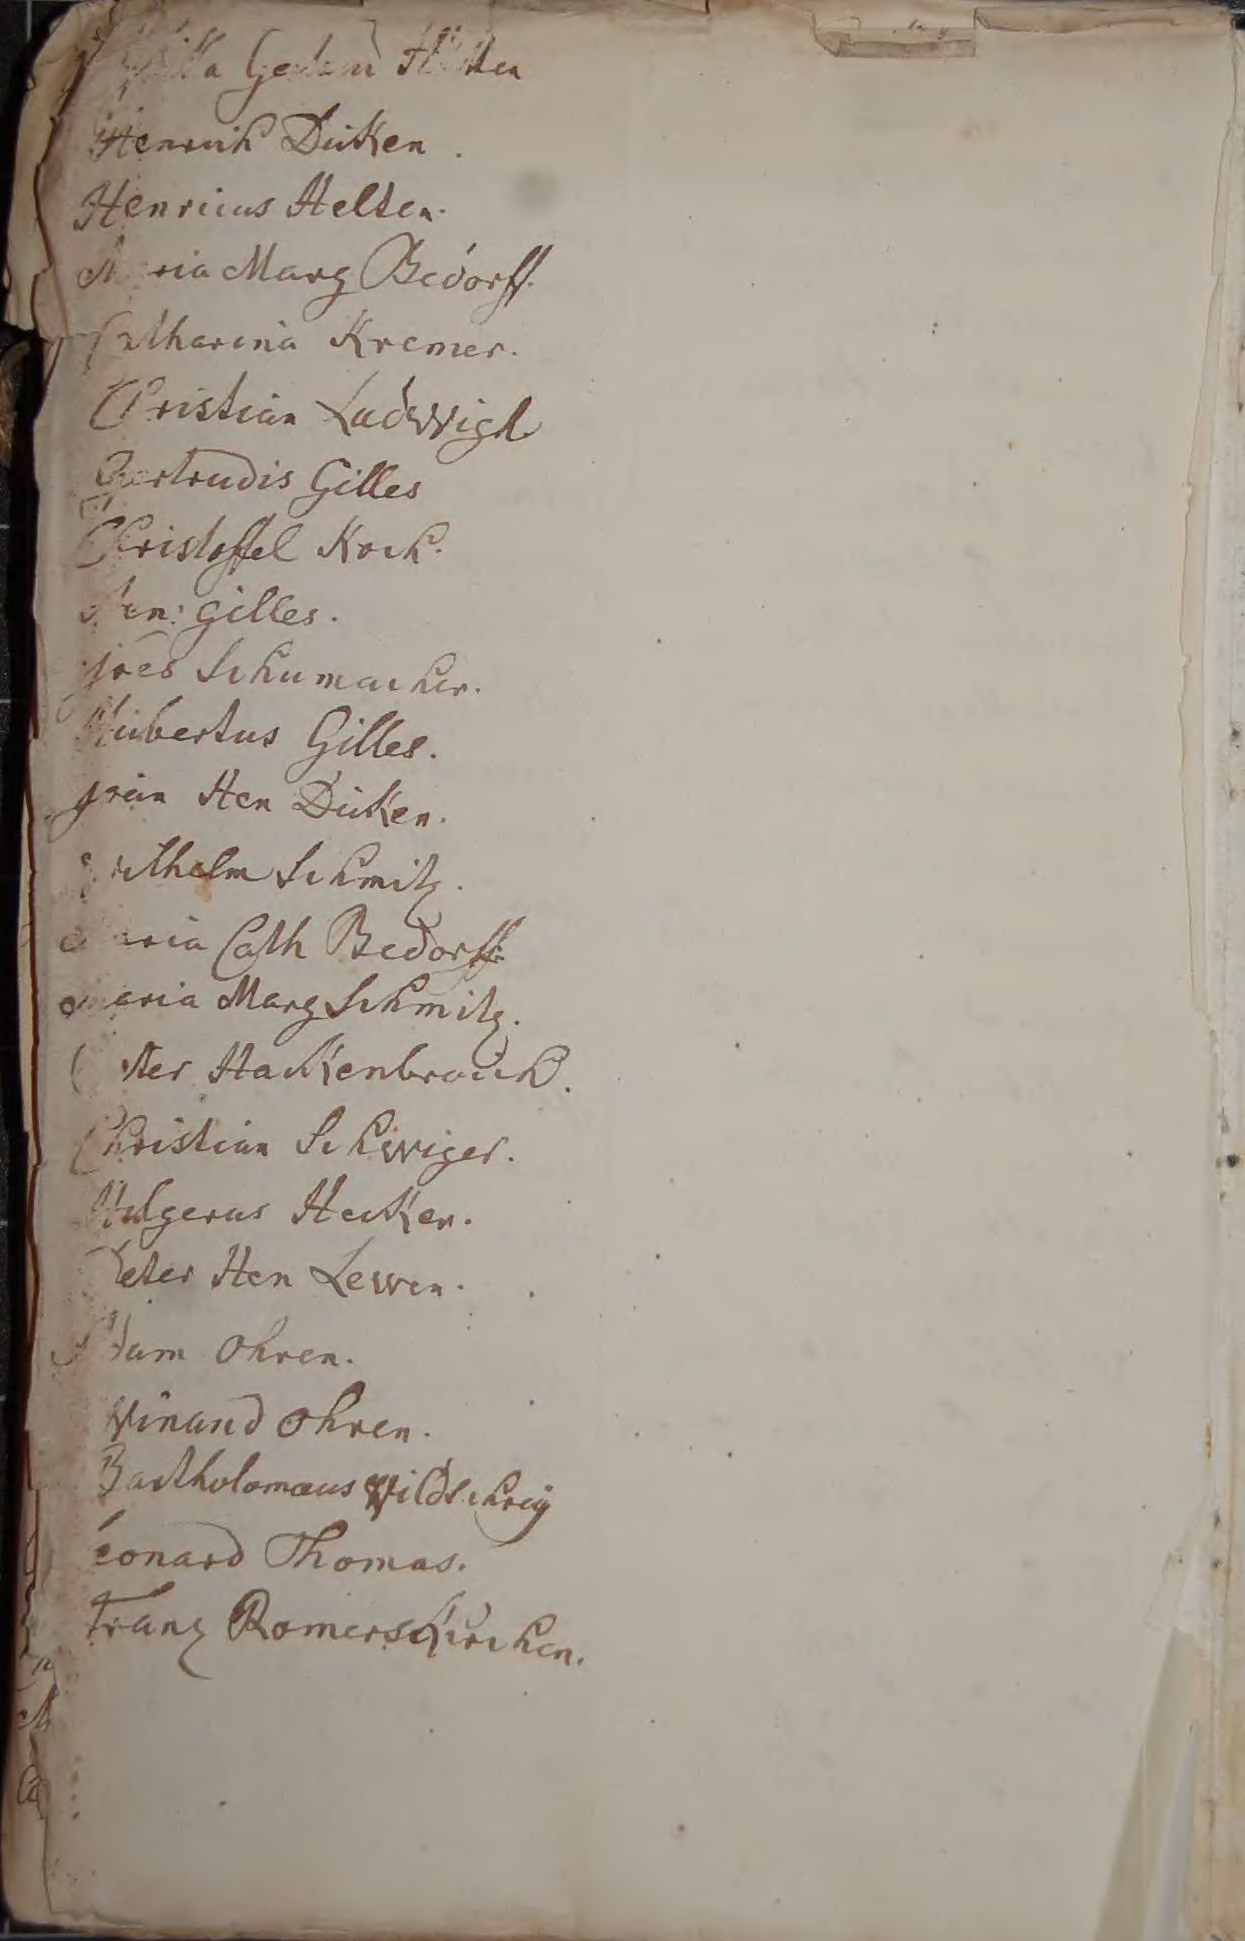 Henrich Dücken.
Henricus Helten.
Maria Marg Bedorff.
Catharina Kremer.
Christian Ludwigh
Gertrudis Gilles
Christoffel Koch.
Hen: Gilles.
joes Schumacher.
Hubertus Gilles.
joan Hen Dücken.
Wilhelm Schmitz.
Maria Cath Bedorff.
Maria Marg Schmitz.
Peter Hackenbroich.
Christian Schwiger.
Hilgerus Hecker.
Peter Hen Lewen.
Adam Ohren.
Winand Ohren.
Bartholomæus Wildschrey
Leonard Thomas.
Franz Romerskirchen.